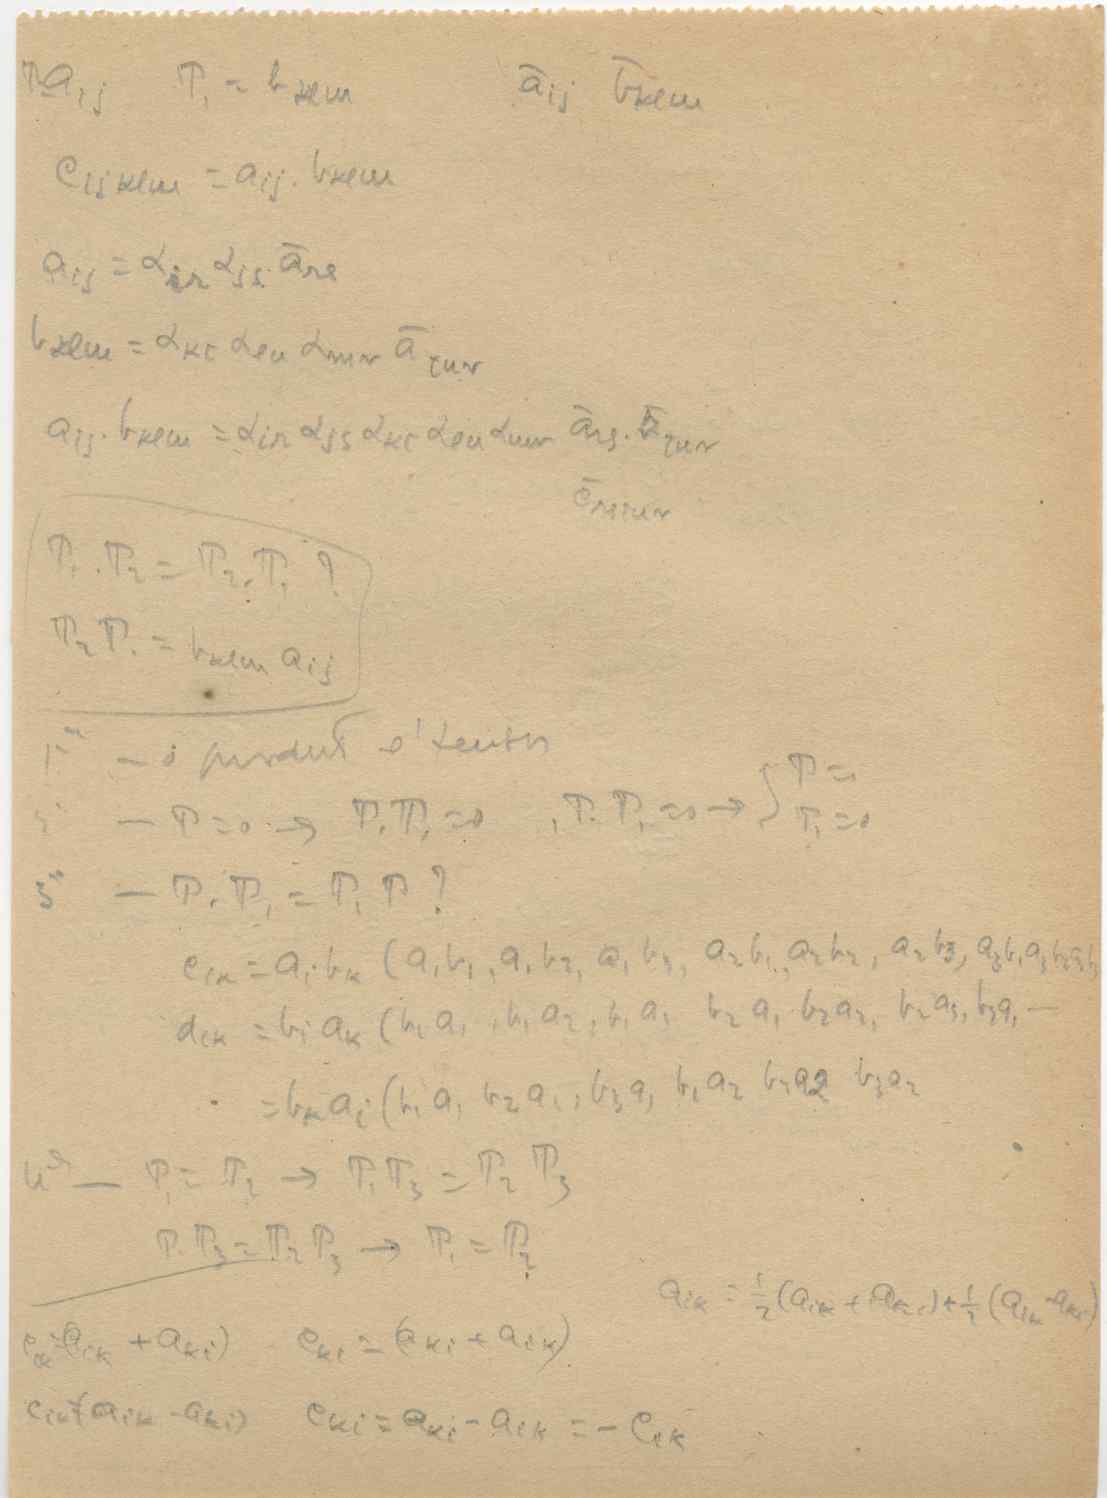 T a_ij T_1 = b_klm ā_ij b̄_klm
c_ijklm = a_ij . b_klm
a_ij = α_ir α_js ā_rs
b_klm = α_kt α_lu α_mv ā_tuv
a_ij . b_klm = α_ir α_js α_kt α_lu α_mv ā_rs . b̄_tuv
c̄_rstuv
T_1 . T_2 = T_2 . T_1 ?
T_2 T_1 = b_klm a_ij
1° —
— T = 0 → T . T_1 = 0 , T . T_1 = 0 → { T = 0
T_1 = 0
3° — T . T_1 = T_1 T ?
c_ik = a_i . b_k ( a_1 b_1 , a_1 b_2 , a_1 b_3 , a_2 b_1 , a_2 b_2 , a_2 b_3 , a_3 b_1 a_3 b_2 a_3 b_3
d_ik = b_i a_k ( b_1 a_1 , b_1 a_2 , b_1 a_3 b_2 a_1 b_2 a_2 , b_2 a_3 , b_3 a_1 —
= b_k a_i ( b_1 a_1 b_2 a_1 , b_3 a_1 b_1 a_2 b_2 a_2 b_3 a_2
4° — T_1 = T_2 → T_1 T_3 = T_2 T_3
T_1 T_3 = T_2 T_3 → T_1 = T_2
a_ik = ½ (a_ik + a_ki) + ½ (a_ik - a_ki)
c_ik = (a_ik + a_ki) c_ki = (a_ki + a_ik)
c_ik = (a_ik - a_ki) c_ki = a_ki - a_ik = - c_ik